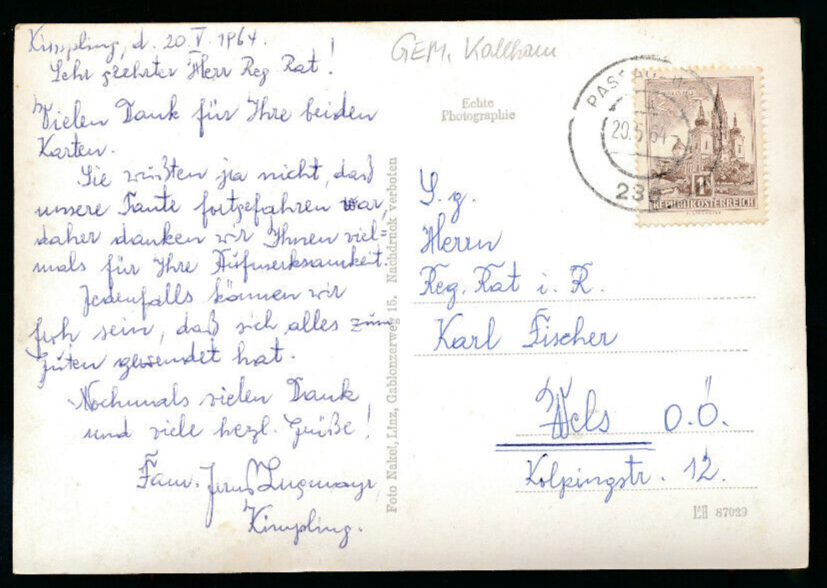 Kimpling, d. 20.V.1964.
Sehr geehrter Herr Reg Rat!
Vielen Dank für Ihre beiden
Karten.
Sie wußten ja nicht, daß
unsere Tante fortgefahren war,
daher danken wir Ihnen viel-
mals für Ihre Aufmerksamkeit.
Jedenfalls können wir
froh sein, daß sich alles zum
Guten gewendet hat.
Nochmals vielen Dank
und viele herzl. Grüße!
Fam. Lugmayr,
Kimpling.
Foto Nakel, Linz, Gablonzerweg 15. Nachdruck verboten
GEM. Kallham
Echte
Photographie
PASSAU
20.5.64
REPUBLIK ÖSTERREICH
S. g.
Herrn
Reg. Rat i. R.
Karl Fischer
Wels O.Ö.
Kolpingstr. 12.
87029